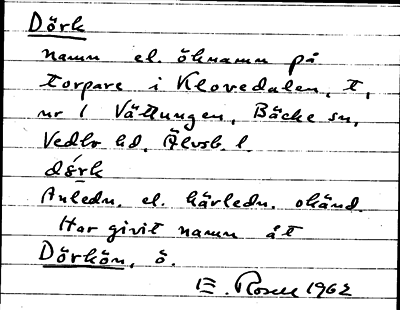 Dörk
namn el. öknamn på
torpare i Klovedalen, t,
nr 1 Vättungen, Bäcke sn,
Vedbo hd, Älvsb. l.
dö́rk
Anledn. el. härledn. okänd.
Har givit namn åt
Dörkön, ö.
E. Rosell 1962